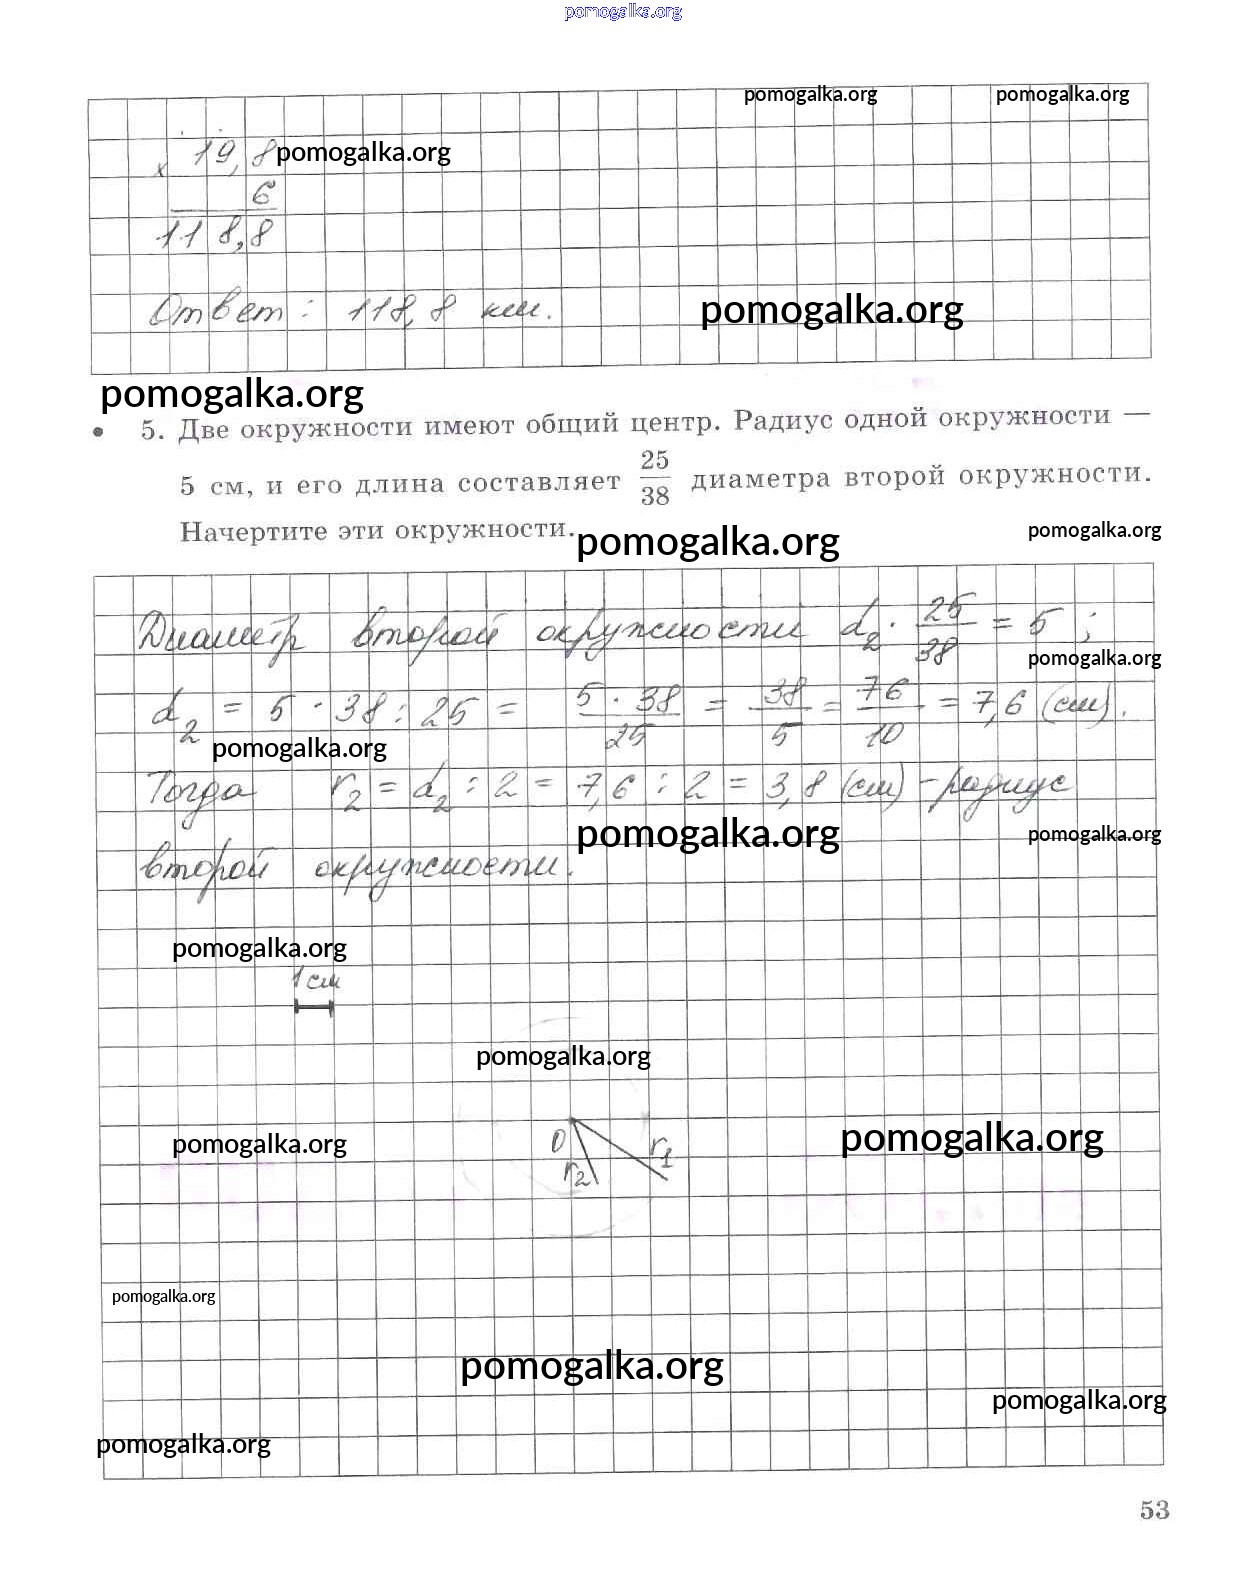 pomogalka.org
pomogalka.org pomogalka.org
× 19,8 pomogalka.org
6
118,8
Ответ: 118,8 км. pomogalka.org
pomogalka.org
• 5. Две окружности имеют общий центр. Радиус одной окружности —
5 см, и его длина составляет 25/38 диаметра второй окружности.
Начертите эти окружности. pomogalka.org pomogalka.org
Диаметр второй окружности d₂ · 25/38 = 5 ;
pomogalka.org
d₂ = 5 · 38 : 25 = 5 · 38/25 = 38/5 = 76/10 = 7,6 (см).
pomogalka.org
Тогда r₂ = d₂ : 2 = 7,6 : 2 = 3,8 (см) – радиус
pomogalka.org pomogalka.org
второй окружности.
pomogalka.org
1 см
pomogalka.org
pomogalka.org O r₁ pomogalka.org
r₂
pomogalka.org
pomogalka.org
pomogalka.org
pomogalka.org
53